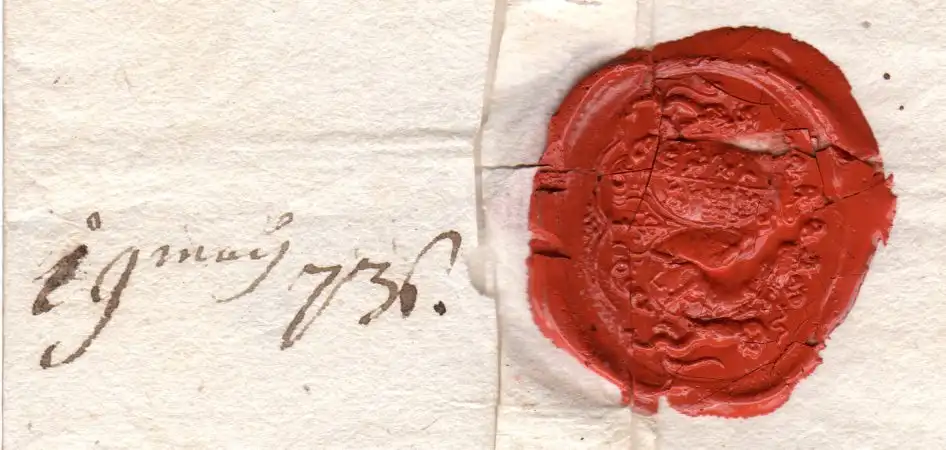 19 maij 736.